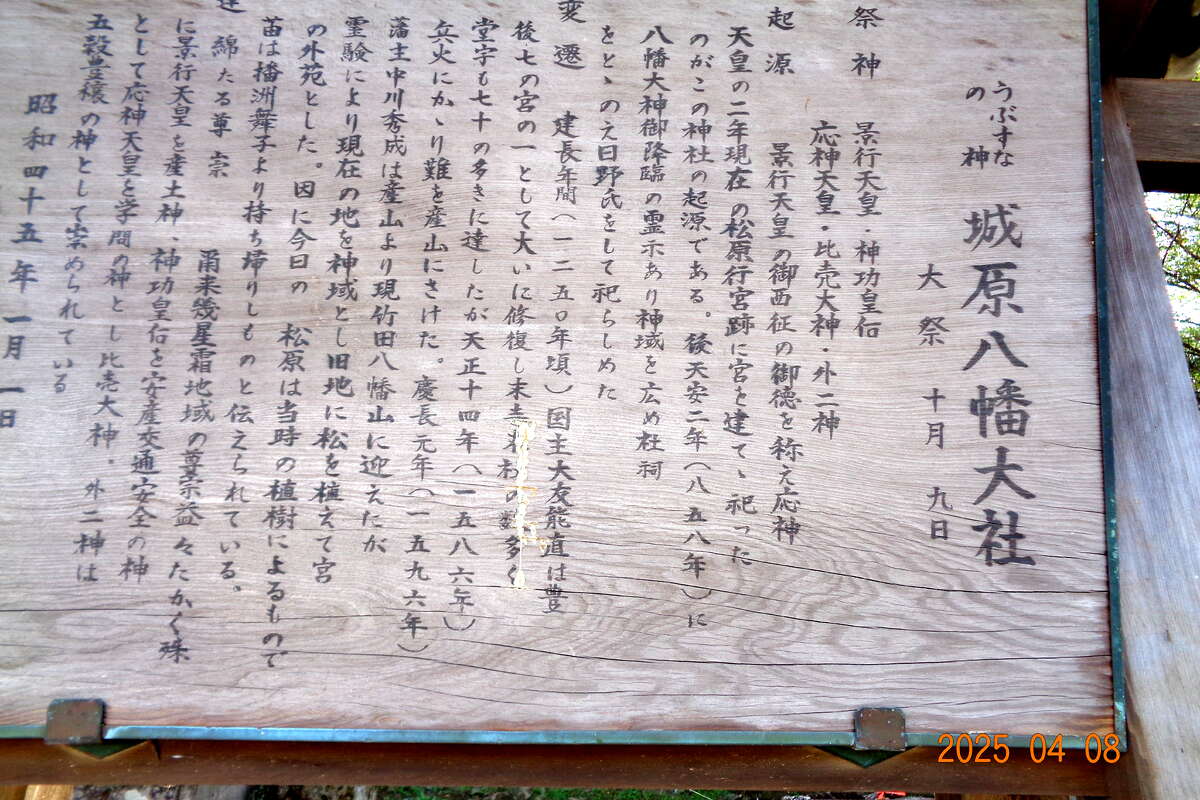 うぶすな
の神
城原八幡大社
大祭　十月　九日
祭神　景行天皇・神功皇后
応神天皇・比売大神・外二神
起源　景行天皇の御西征の御徳を称え応神
天皇の二年現在の松原行宮跡に宮を建てゝ祀った
のがこの神社の起源である。後天安二年（八五八年）に
八幡大神御降臨の霊示あり神域を広め社祠
をとゝのえ日野氏をして祀らしめた
変遷　建長年間（一二五〇年頃）国主大友能直は豊
後七の宮の一として大いに修復し末の数多く
堂宇も七十の多きに達したが天正十四年（一五八六年）
兵火にかゝり難を産山にさけた。慶長元年（一五九六年）
藩主中川秀成は産山より現竹田八幡山に迎えたが
霊験により現在の地を神域とし旧地に松を植えて宮
の外苑とした。因に今日の　松原は当時の植樹によるもので
苗は播洲舞子より持ち帰りしものと伝えられている。
連綿たる尊崇　爾来幾星霜地域の尊崇益々たかく殊
に景行天皇を産土神、神功皇后を安産交通安全の神
として応神天皇を学問の神とし比売大神・外二神は
五穀豊穣の神として崇められている
昭和四十五年一月一日
2025 04 08